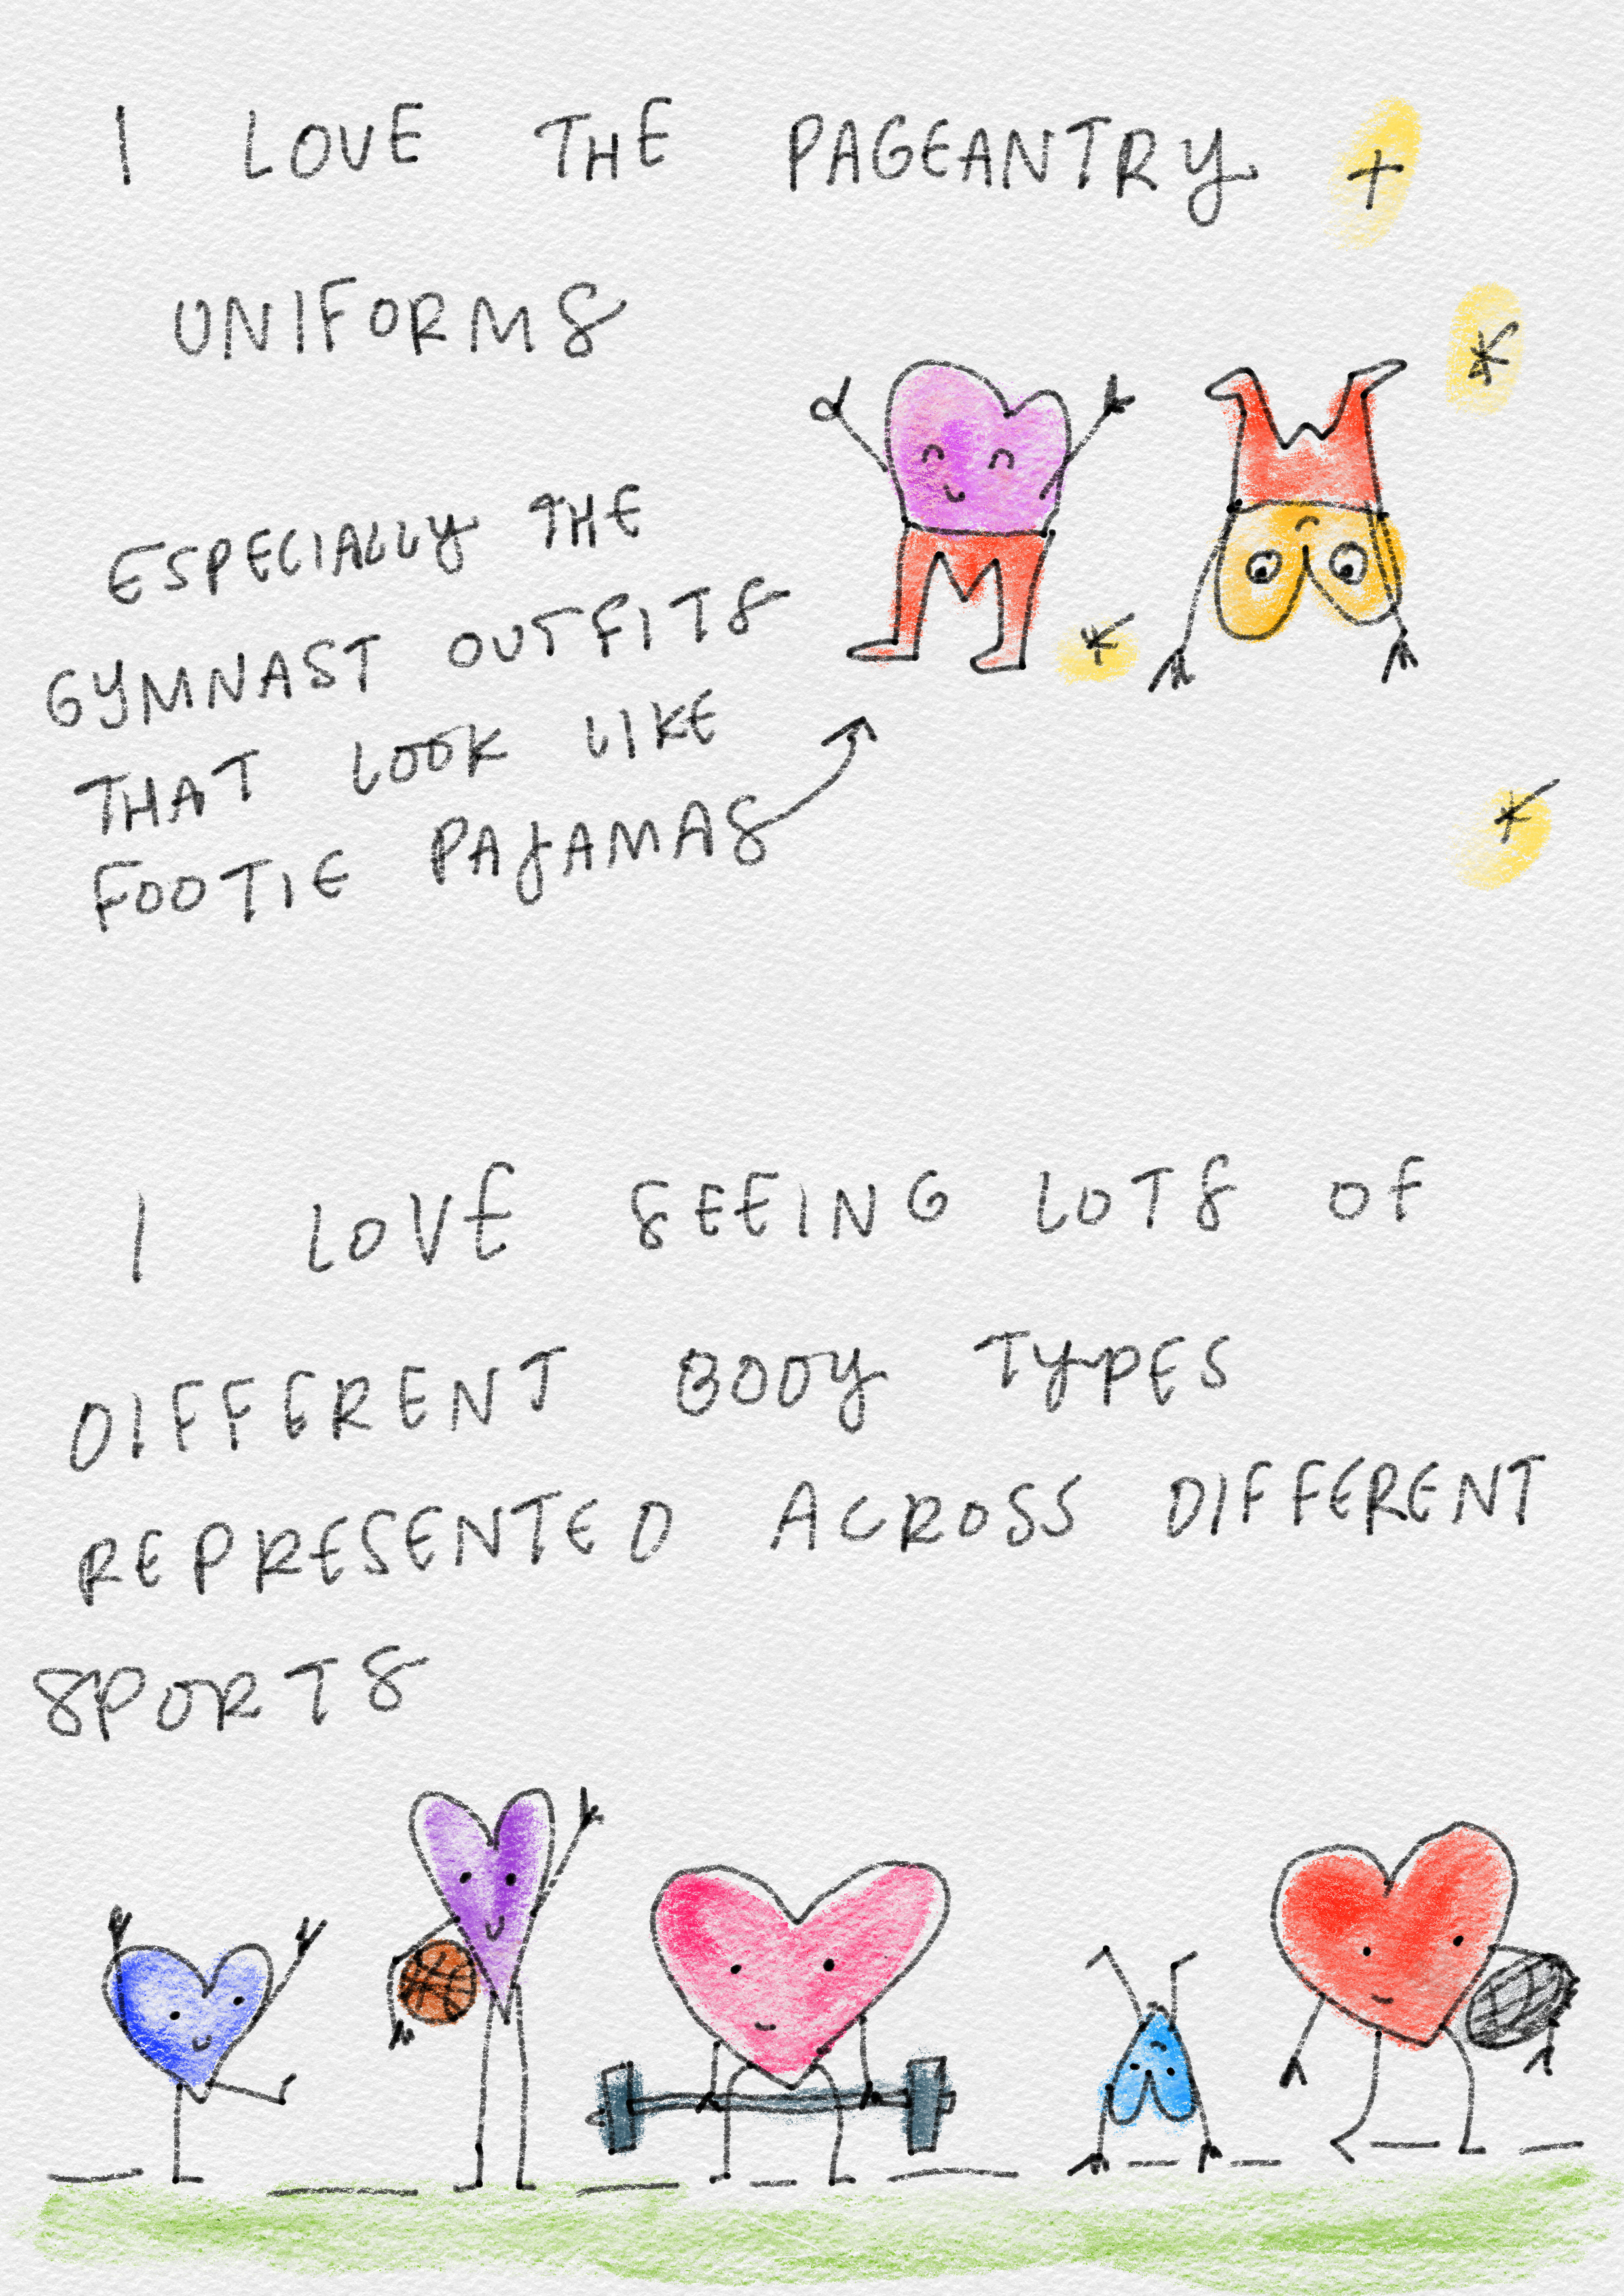 I LOVE THE PAGEANTRY +
UNIFORMS
ESPECIALLY THE
GYMNAST OUTFITS
THAT LOOK LIKE
FOOTIE PAJAMAS
I LOVE SEEING LOTS OF
DIFFERENT BODY TYPES
REPRESENTED ACROSS DIFFERENT
SPORTS